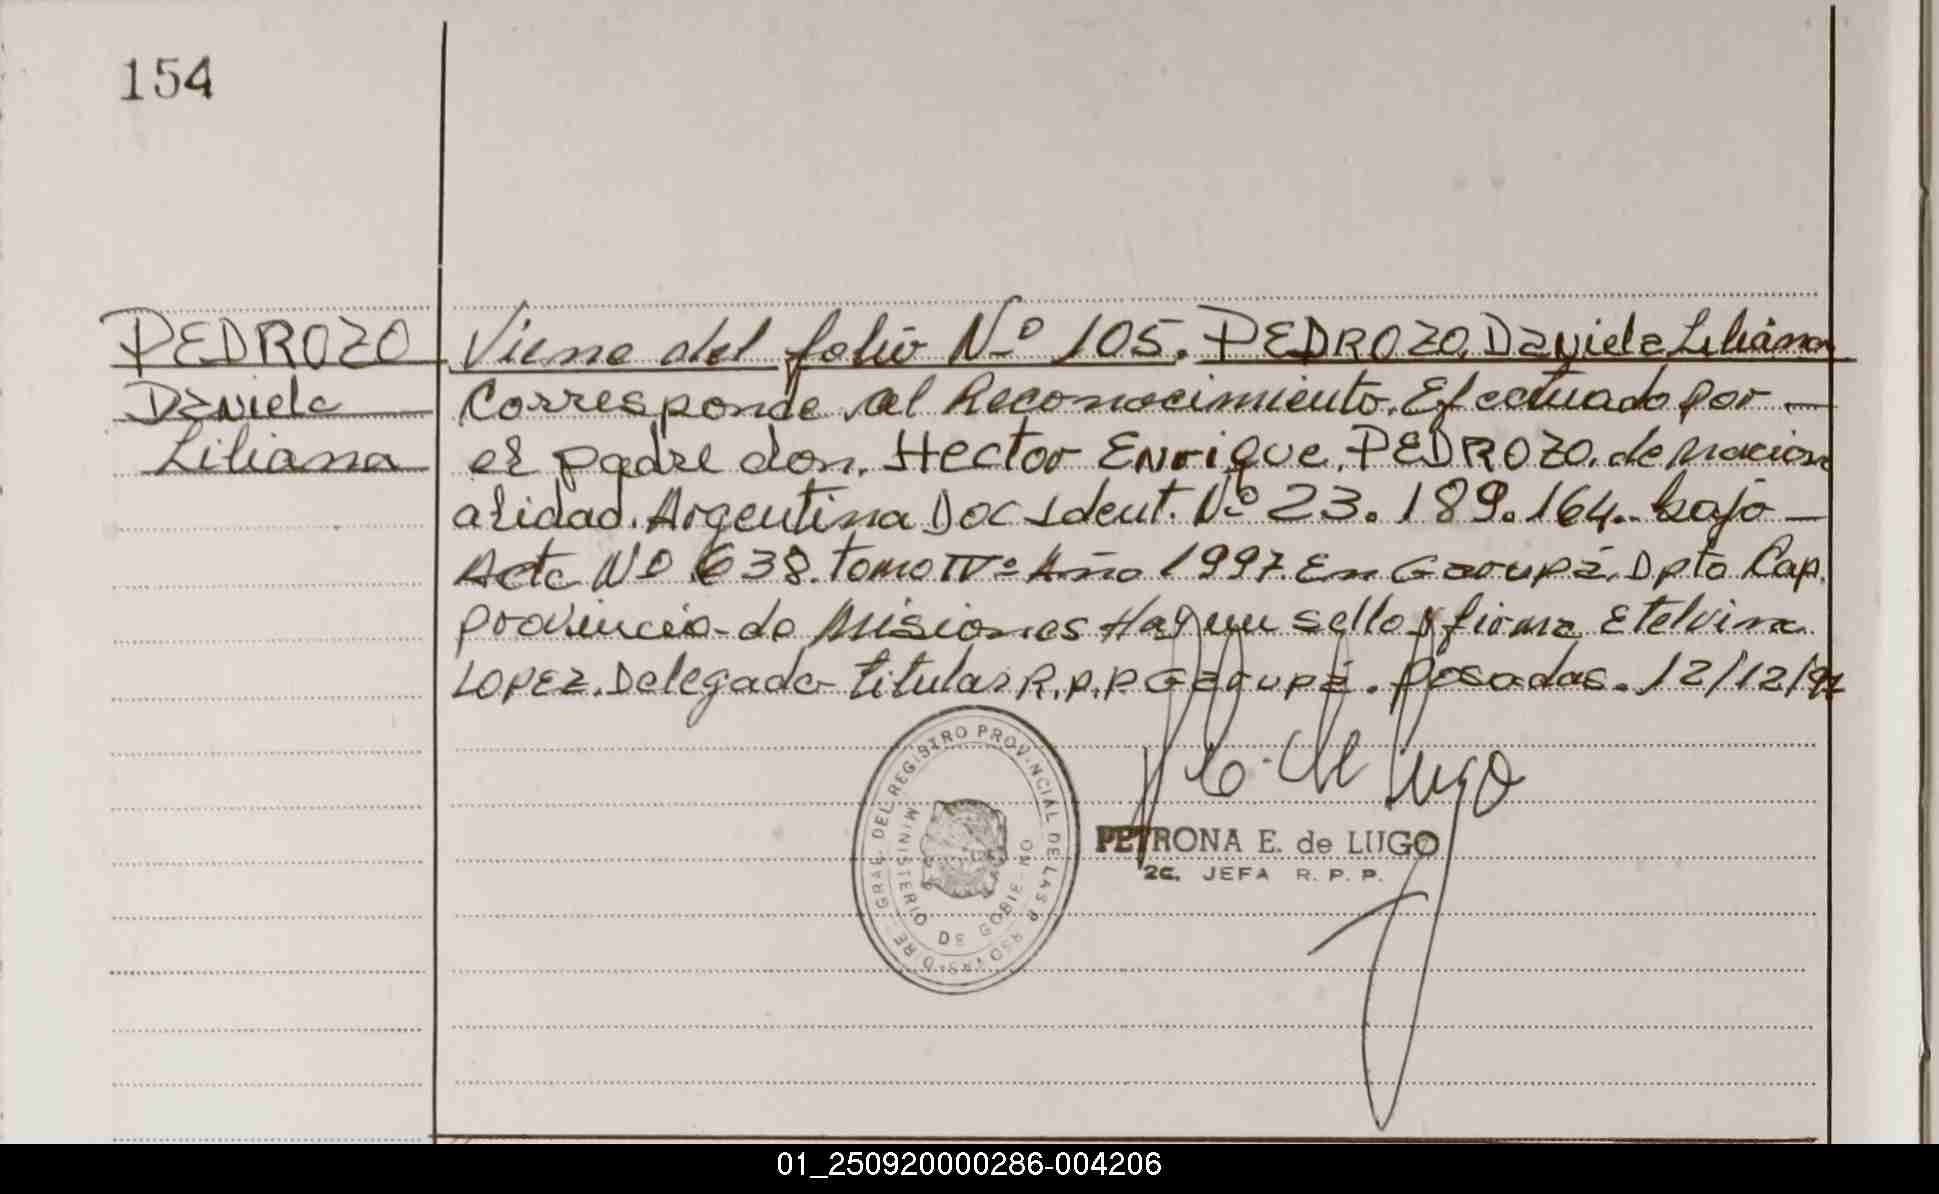 154
PEDROZO
Daniela
Liliana
Viene del folio Nº 105. PEDROZO, Daniela Liliana
Corresponde al Reconocimiento. Efectuado por
el padre don. Hector Enrique. PEDROZO. de nacion
alidad. Argentina Doc Ident. Nº 23.189.164. bajo
Acta Nº 638. Tomo IVº Año 1997. En Garupá. Dpto Cap.
provincia de Misiones Hay un sello y firma Etelvina
LOPEZ. Delegada titular R.P.P Garupá. Posadas. 12/12/97
E. de Lugo
PETRONA E. de LUGO
2a. JEFA R. P. P.
GRAL. DEL REGISTRO PROVINCIAL DE LAS
MINISTERIO DE GOBIERNO
01_250920000286-004206